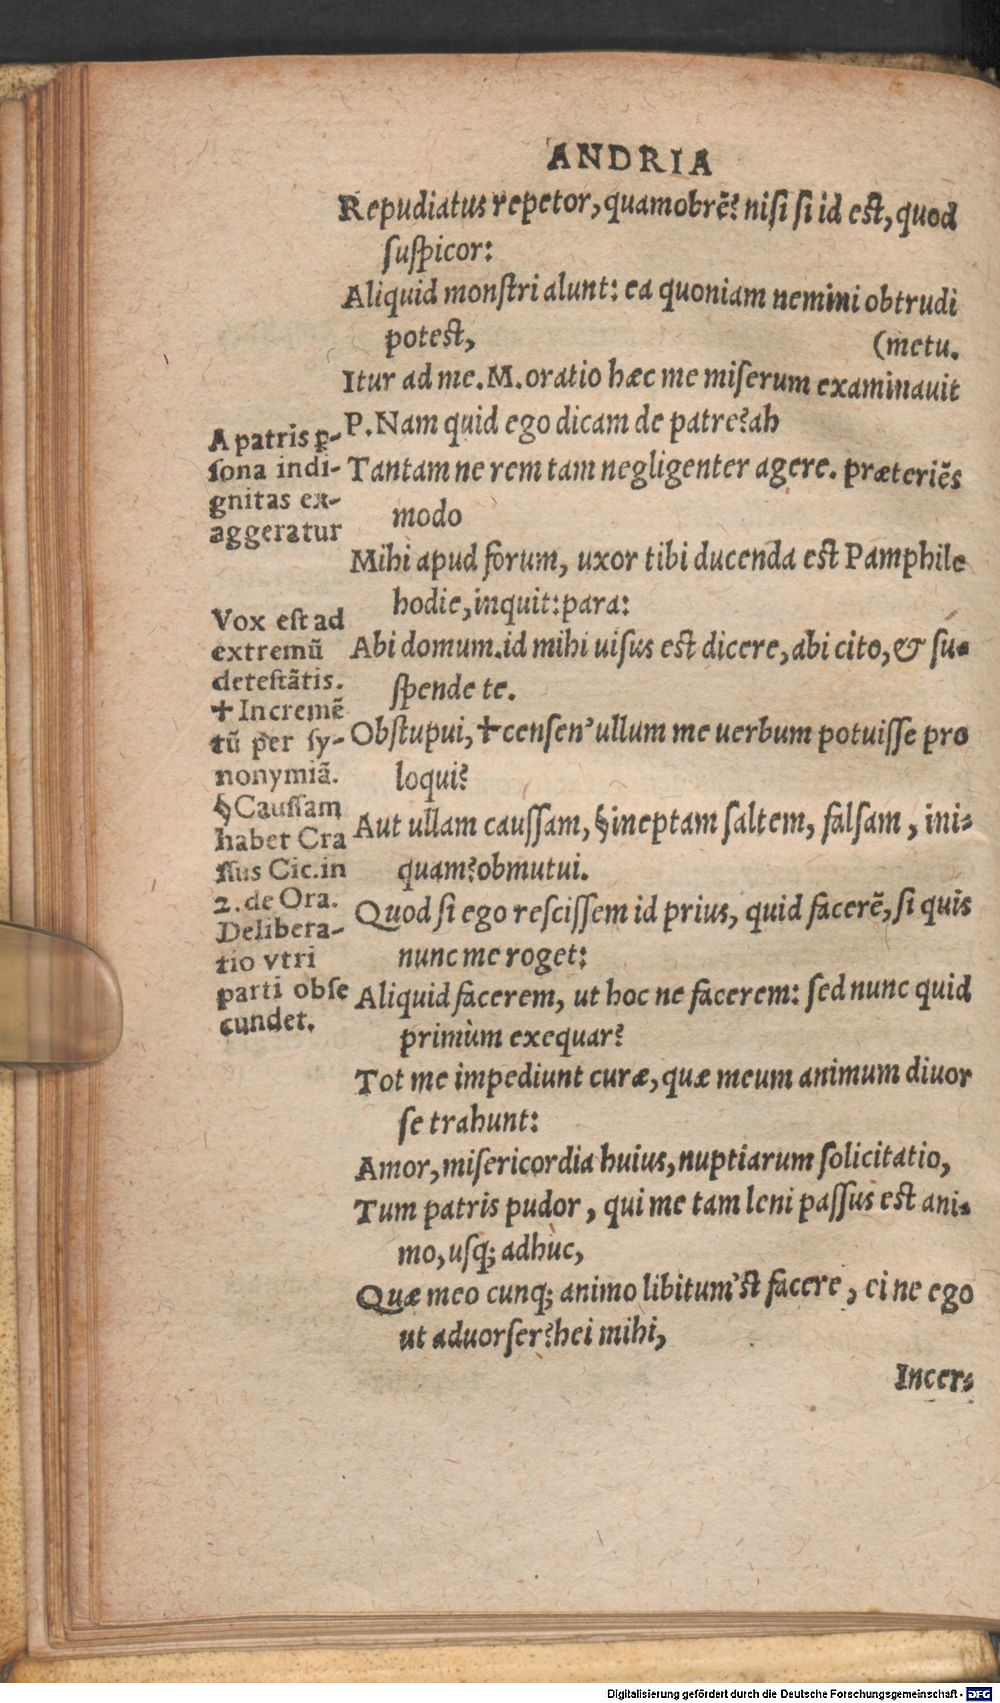 ANDRIA
Repudiatus repetor, quamobrē? nisi si id est, quod
suspicor:
Aliquid monstri alunt: ea quoniam nemini obtrudi
potest, (metu.
Itur ad me. M. oratio hæc me miserum examinauit
P. Nam quid ego dicam de patre? ah
Tantam ne rem tam negligenter agere. præteriēs
modo
Mihi apud forum, uxor tibi ducenda est Pamphile
hodie, inquit: para:
Abi domum. id mihi uisus est dicere, abi cito, & su-
spende te.
Obstupui, ✝censen' ullum me uerbum potuisse pro
loqui?
Aut ullam caussam, §ineptam saltem, falsam, ini-
quam? obmutui.
Quod si ego rescissem id prius, quid facerē, si quis
nunc me roget:
Aliquid facerem, ut hoc ne facerem: sed nunc quid
primùm exequar?
Tot me impediunt curæ, quæ meum animum diuor
se trahunt:
Amor, misericordia huius, nuptiarum solicitatio,
Tum patris pudor, qui me tam leni passus est ani-
mo, usq; adhuc,
Quæ meo cunq; animo libitum'st facere, ei ne ego
ut aduorser? hei mihi,
Incer-
A patris p̲-
sona indi-
gnitas ex-
aggeratur
Vox est ad
extremū
detestātis.
✝Incremē
tū per sy-
nonymiā.
§Caussam
habet Cra
ssus Cic. in
2. de Ora.
Delibera-
tio vtri
parti obse
cundet.
Digitalisierung gefördert durch die Deutsche Forschungsgemeinschaft - DFG